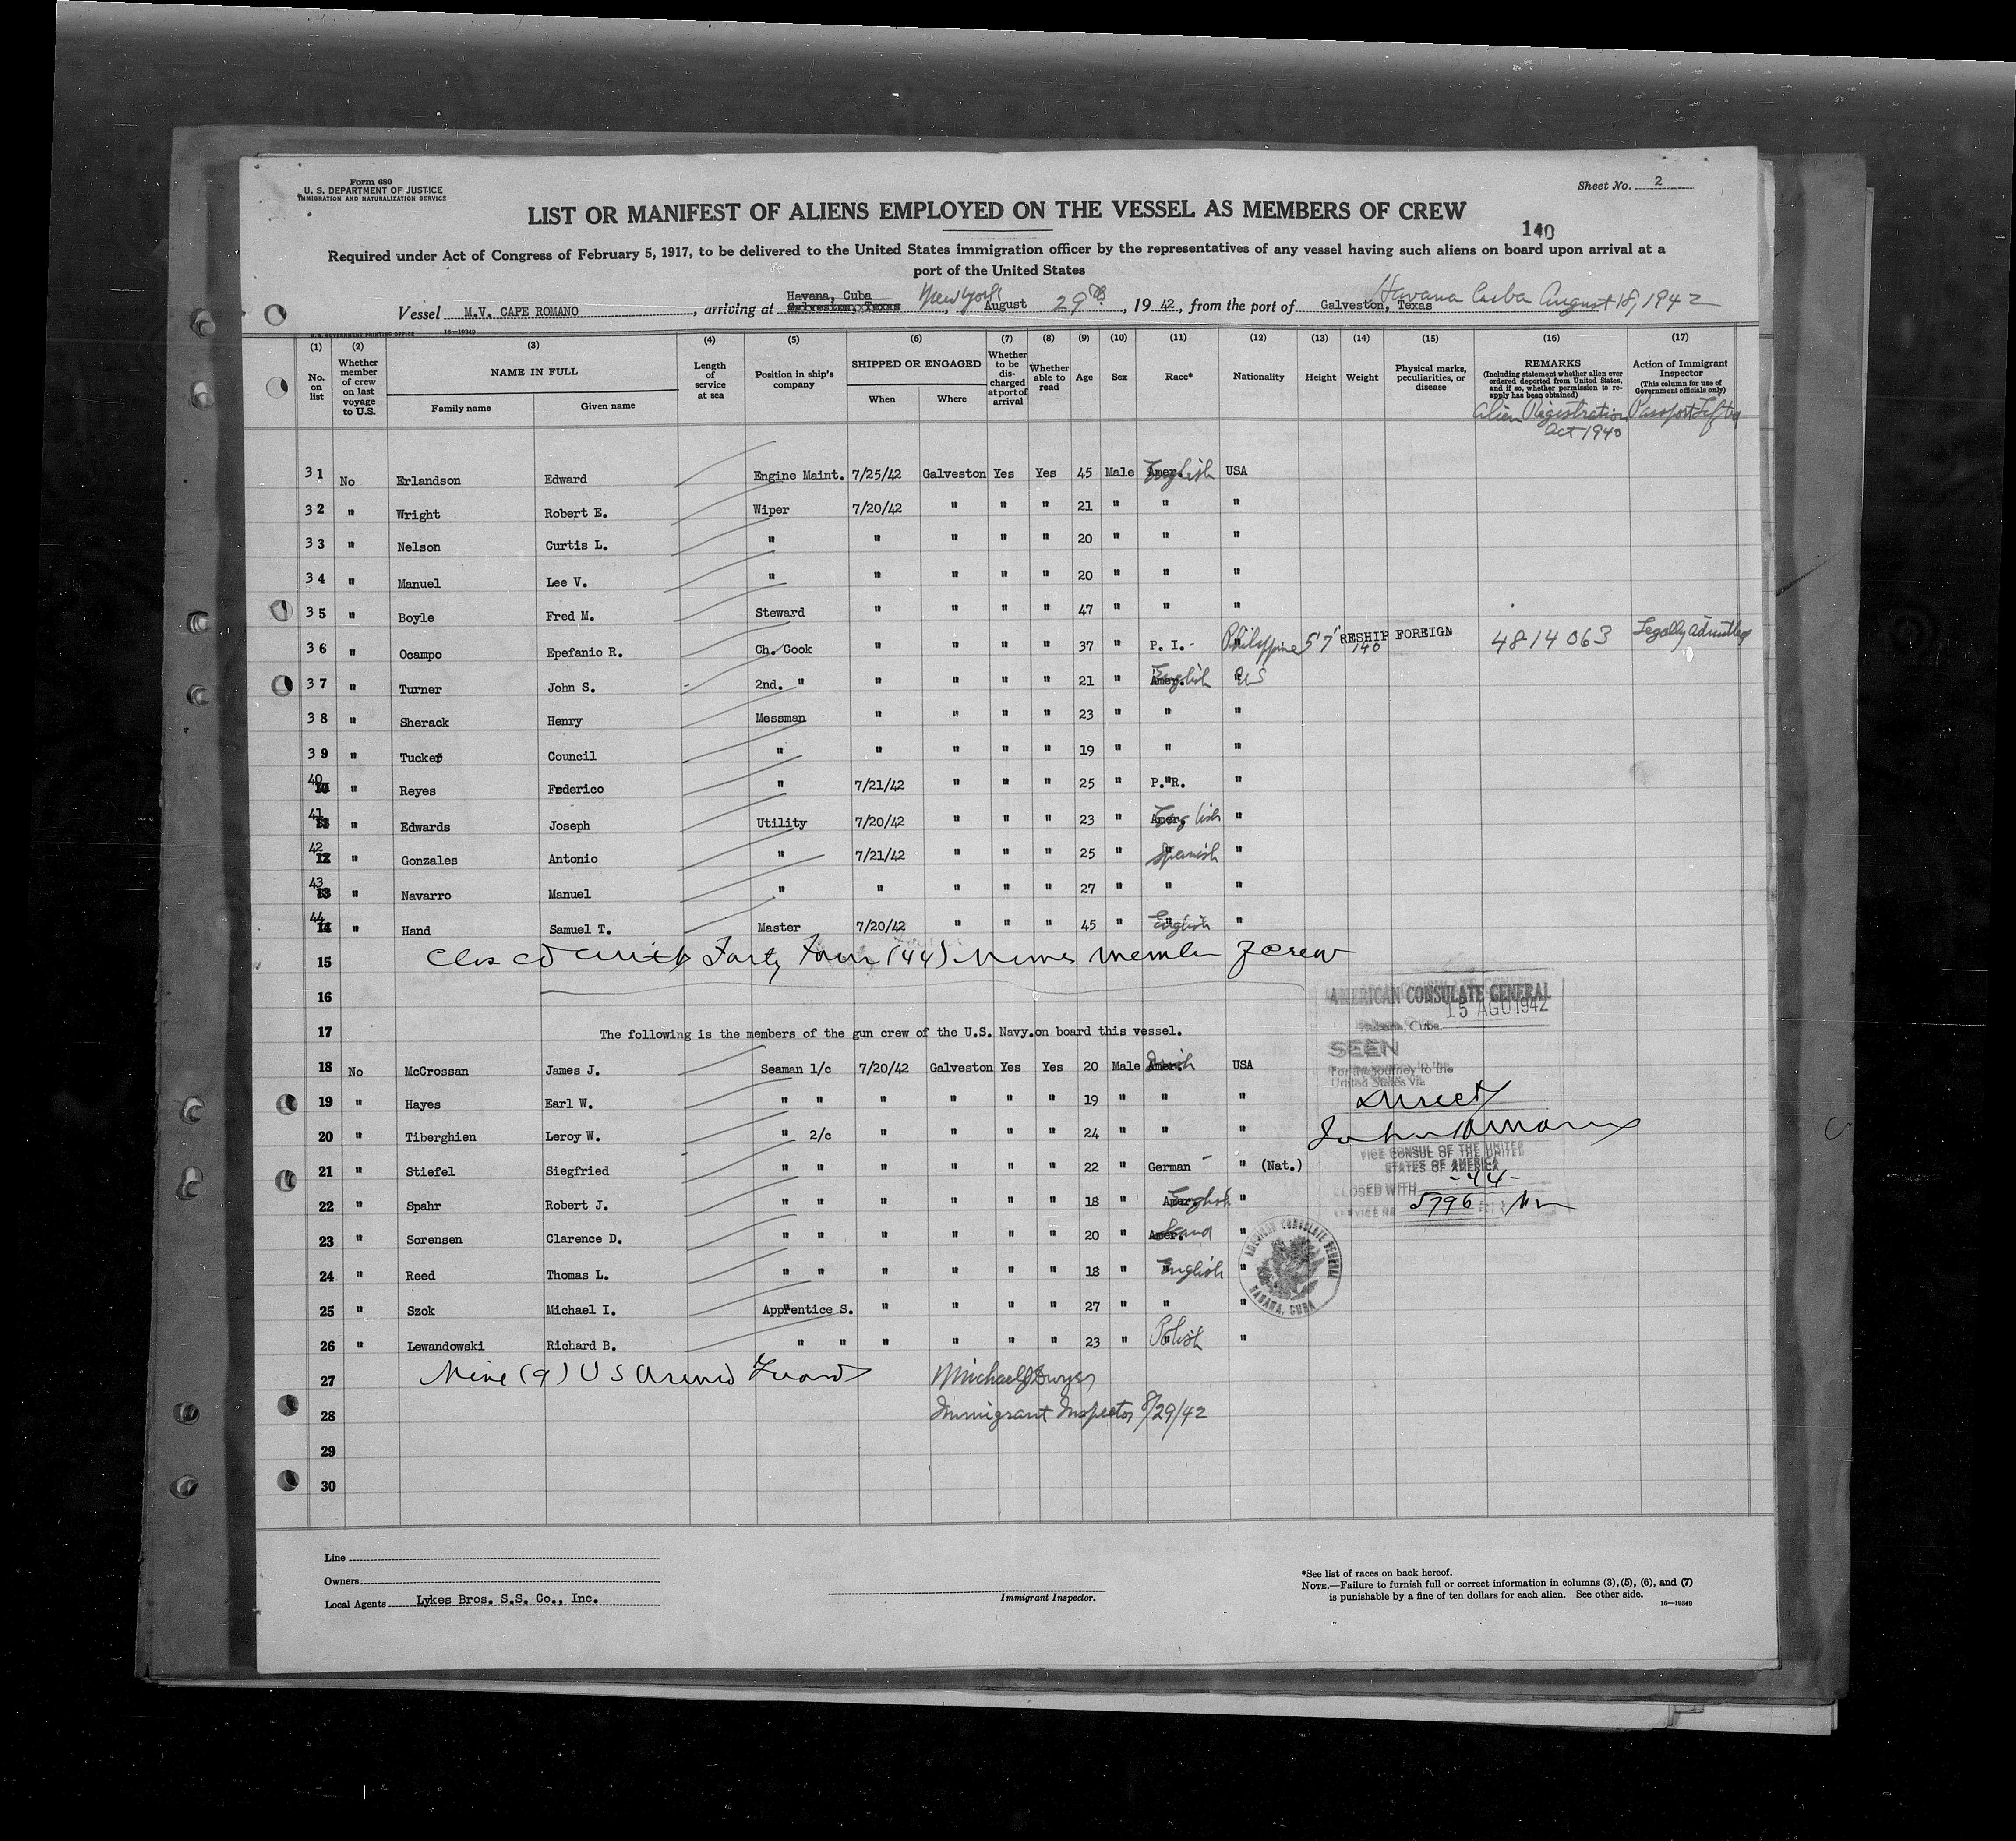 Form 680
U. S. DEPARTMENT OF JUSTICE
IMMIGRATION AND NATURALIZATION SERVICE
Sheet No. 2
LIST OR MANIFEST OF ALIENS EMPLOYED ON THE VESSEL AS MEMBERS OF CREW
140
Required under Act of Congress of February 5, 1917, to be delivered to the United States immigration officer by the representatives of any vessel having such aliens on board upon arrival at a
port of the United States
Havana, Cuba New York Havana Cuba August 18, 1942
Vessel M.V. CAPE ROMANO, arriving at Galveston, Texas, August 29th, 1942, from the port of Galveston, Texas
U. S. GOVERNMENT PRINTING OFFICE 16—19349
(1) (2) (3) (4) (5) (6) (7) (8) (9) (10) (11) (12) (13) (14) (15) (16) (17)
No. on list
Whether member of crew on last voyage to U.S.
NAME IN FULL
Family name Given name
Length of service at sea
Position in ship's company
SHIPPED OR ENGAGED
When Where
Whether to be discharged at port of arrival
Whether able to read
Age Sex Race* Nationality Height Weight
Physical marks, peculiarities, or disease
REMARKS
(Including statement whether alien ever ordered deported from United States, and if so, whether permission to reapply has been obtained)
Action of Immigrant Inspector
(This column for use of Government officials only)
Alien Registration Act 1940
31 No Erlandson Edward Engine Maint. 7/25/42 Galveston Yes Yes 45 Male Amer. English USA
32 " Wright Robert E. Wiper 7/20/42 " " " 21 " " "
33 " Nelson Curtis L. " " " " " 20 " " "
34 " Manuel Lee V. " " " " " 20 " " "
35 " Boyle Fred M. Steward " " " " 47 " " "
36 " Ocampo Epefanio R. Ch. Cook " " " " 37 " P. I. - Philippine 5'7" 140 RESHIP FOREIGN 4814063 Legally admitted
37 " Turner John S. 2nd. " " " " " 21 " Amer. English " US
38 " Sherack Henry Messman " " " " 23 " " "
39 " Tucker Council " " " " " 19 " " "
40 10 " Reyes Federico " 7/21/42 " " " 25 " P.R. "
41 11 " Edwards Joseph Utility 7/20/42 " " " 23 " Amer. English "
42 12 " Gonzales Antonio " 7/21/42 " " " 25 " Spanish "
43 13 " Navarro Manuel " " " " " 27 " " "
44 14 " Hand Samuel T. Master 7/20/42 " " " 45 " English "
15 Closed with Forty Four (44) Names member of crew
16
AMERICAN CONSULATE GENERAL
15 AGO 1942
Habana, Cuba.
17 The following is the members of the gun crew of the U.S. Navy.on board this vessel.
SEEN
For the journey to the
United States Via
Direct
18 No McCrossan James J. Seaman 1/c 7/20/42 Galveston Yes Yes 20 Male Amer. Irish USA
19 " Hayes Earl W. " " " " " " 19 " " "
20 " Tiberghien Leroy W. " 2/c " " " " 24 " " "
VICE CONSUL OF THE UNITED
STATES OF AMERICA
21 " Stiefel Siegfried " " " " " " 22 " German " (Nat.)
CLOSED WITH -44-
SERVICE No 5796
22 " Spahr Robert J. " " " " " " 18 " Amer. English "
23 " Sorensen Clarence D. " " " " " " 20 " Amer. "
24 " Reed Thomas L. " " " " " " 18 " English "
AMERICAN CONSULATE GENERAL
HABANA, CUBA
25 " Szok Michael I. Apprentice S. " " " " 27 " " "
26 " Lewandowski Richard B. " " " " " " 23 " Polish "
27 Nine (9) US Armed Guard Michael J Dwyer
28 Immigrant Inspector 8/29/42
29
30
Line
Owners
Local Agents Lykes Bros. S.S. Co., Inc.
Immigrant Inspector.
*See list of races on back hereof.
NOTE.—Failure to furnish full or correct information in columns (3), (5), (6), and (7)
is punishable by a fine of ten dollars for each alien. See other side.
16—19349